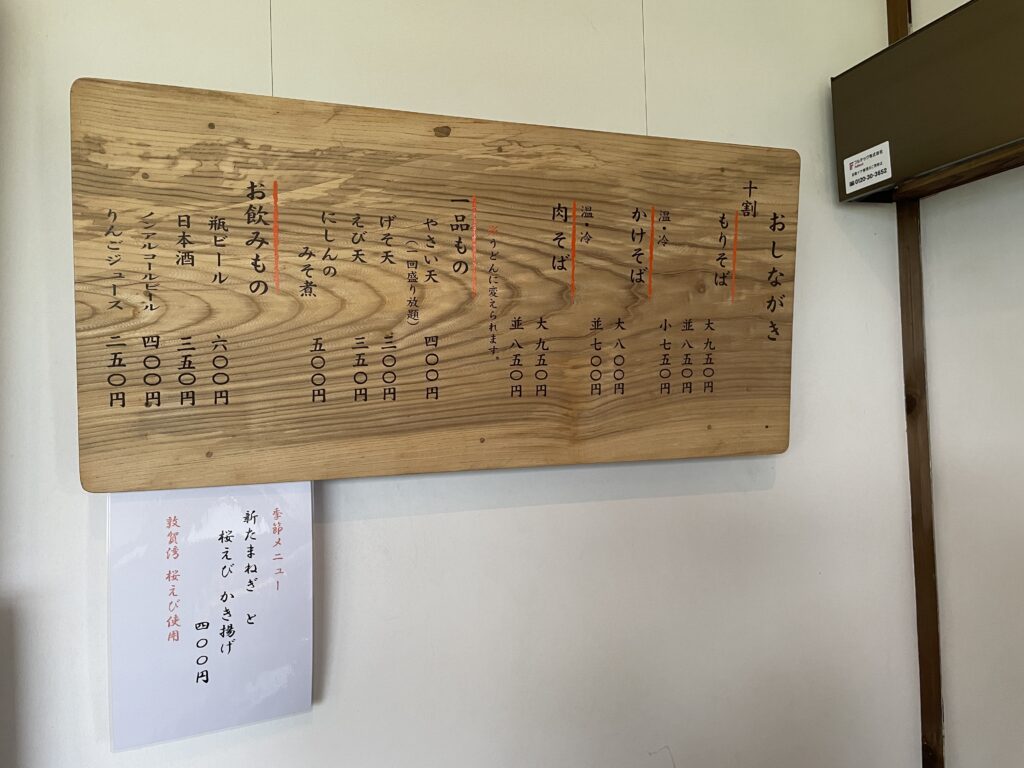 おしながき
十割
もりそば
大 九五〇円
並 八五〇円
小 七五〇円
温・冷
かけそば
大 八〇〇円
並 七〇〇円
温・冷
肉そば
大 九五〇円
並 八五〇円
※うどんに変えられます。
一品もの
やさい天 四〇〇円
（一回盛り放題）
げそ天 三〇〇円
えび天 三五〇円
にしんの
みそ煮 五〇〇円
お飲みもの
瓶ビール 六〇〇円
日本酒 三五〇円
ノンアルコールビール 四〇〇円
りんごジュース 二五〇円
季節メニュー
新たまねぎ と
桜えび かき揚げ
四〇〇円
敦賀湾 桜えび使用
フルテック株式会社
0120-30-3652